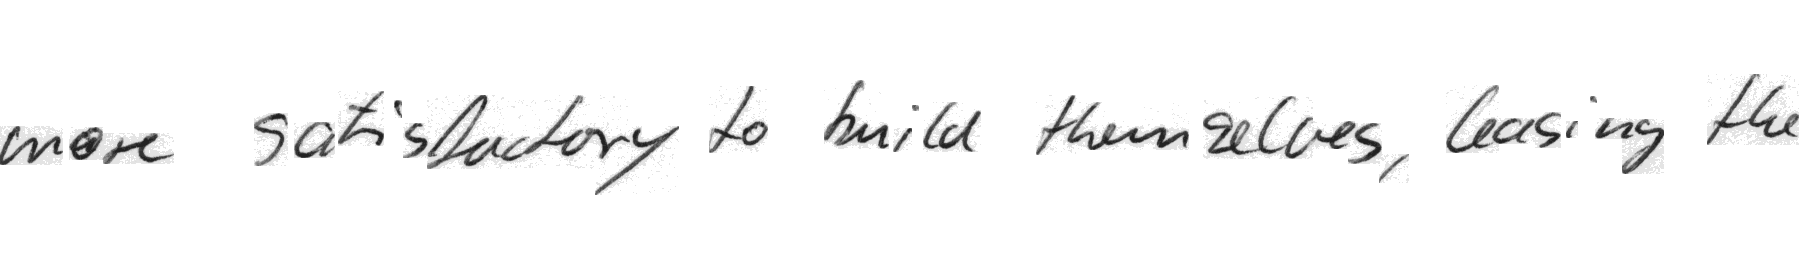 more satisfactory to build themselves, leasing the